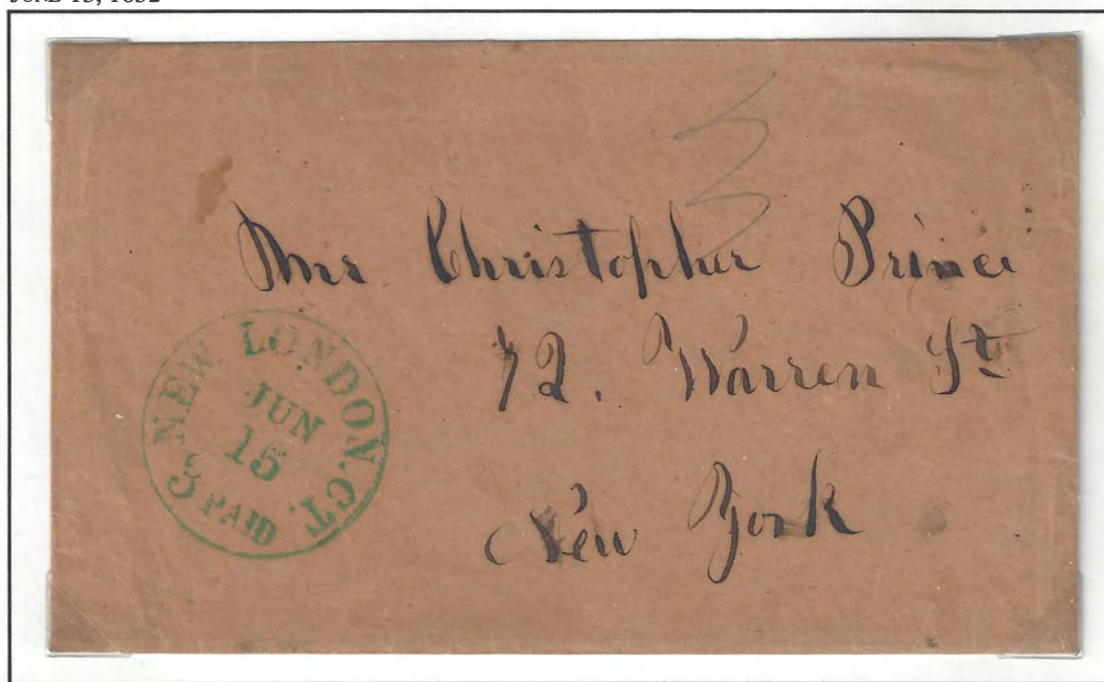 JUNE 15, 1852
3
Mr Christopher Prince
72. Warren St
New York
NEW LONDON. CT.
JUN
15
3 PAID